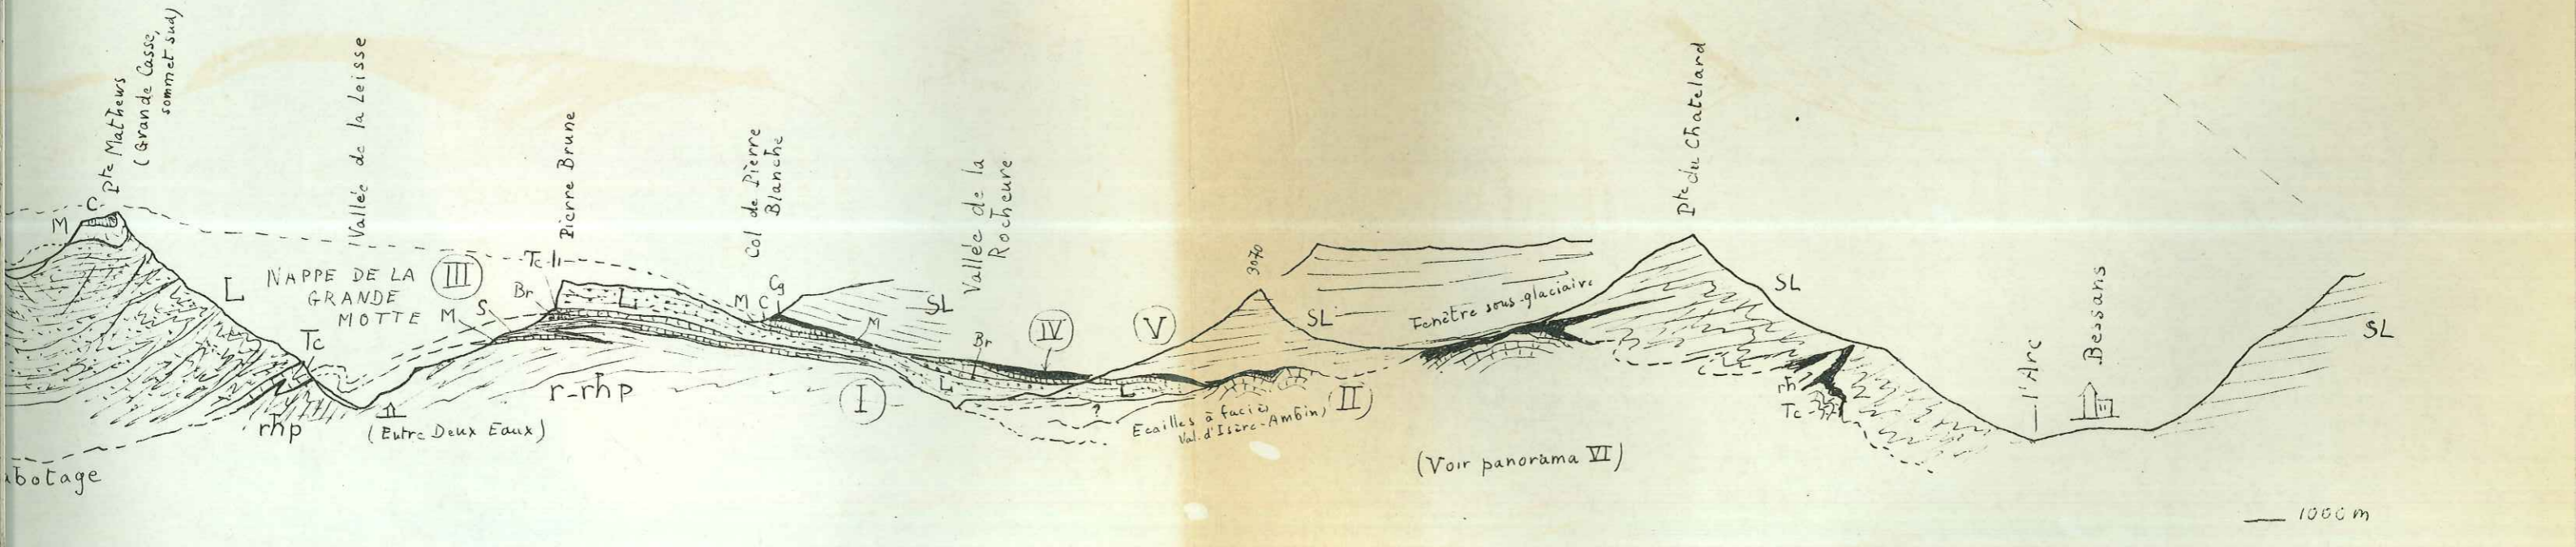 Pte Mathews
(Grande Casse,
sommet sud)
Vallée de la Leisse
Pierre Brune
Col de Pierre
Blanche
Vallée de la
Rocheure
3070
Pte du Chatelard
l'Arc
Bessans
M
C
L
NAPPE DE LA
GRANDE
MOTTE
III
Tc
M
S
Br
Tc
L
M
C
Cg
SL
M
Br
IV
V
SL
Fenêtre sous-glaciaire
SL
SL
Tc
rhp
(Entre Deux Eaux)
r-rhp
I
L
L
?
Ecailles à faciès
Val d'Isère-Ambin)
II
rh
Tc
(Voir panorama VI)
botage
1000 m